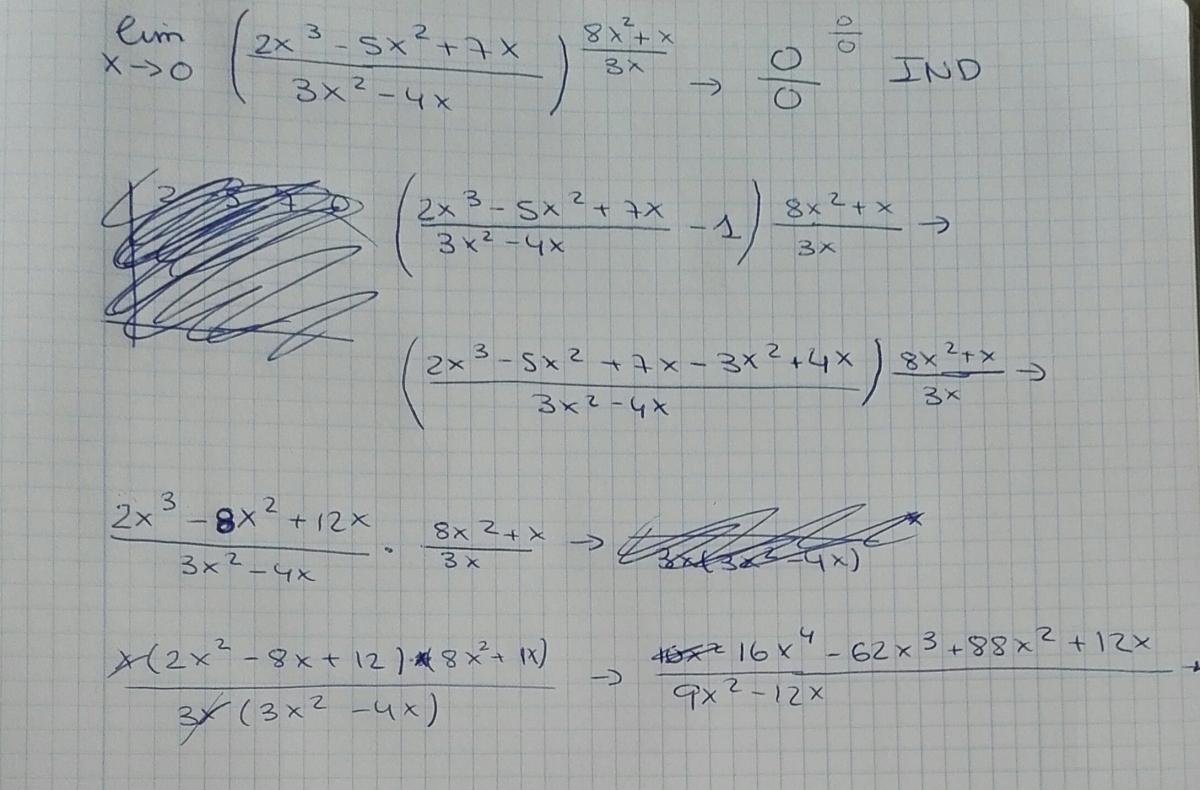 lim x→0 (2x³ - 5x² + 7x / 3x² - 4x)^(8x² + x / 3x) → 0/0 ^ 0/0 IND
(2x³ - 5x² + 7x / 3x² - 4x - 1) 8x² + x / 3x →
(2x³ - 5x² + 7x - 3x² + 4x / 3x² - 4x) 8x² + x / 3x →
2x³ - 8x² + 12x / 3x² - 4x · 8x² + x / 3x → 3x(3x² - 4x)
x(2x² - 8x + 12)·(8x² + 1x) / 3x(3x² - 4x) → 16x⁴ - 62x³ + 88x² + 12x / 9x² - 12x →